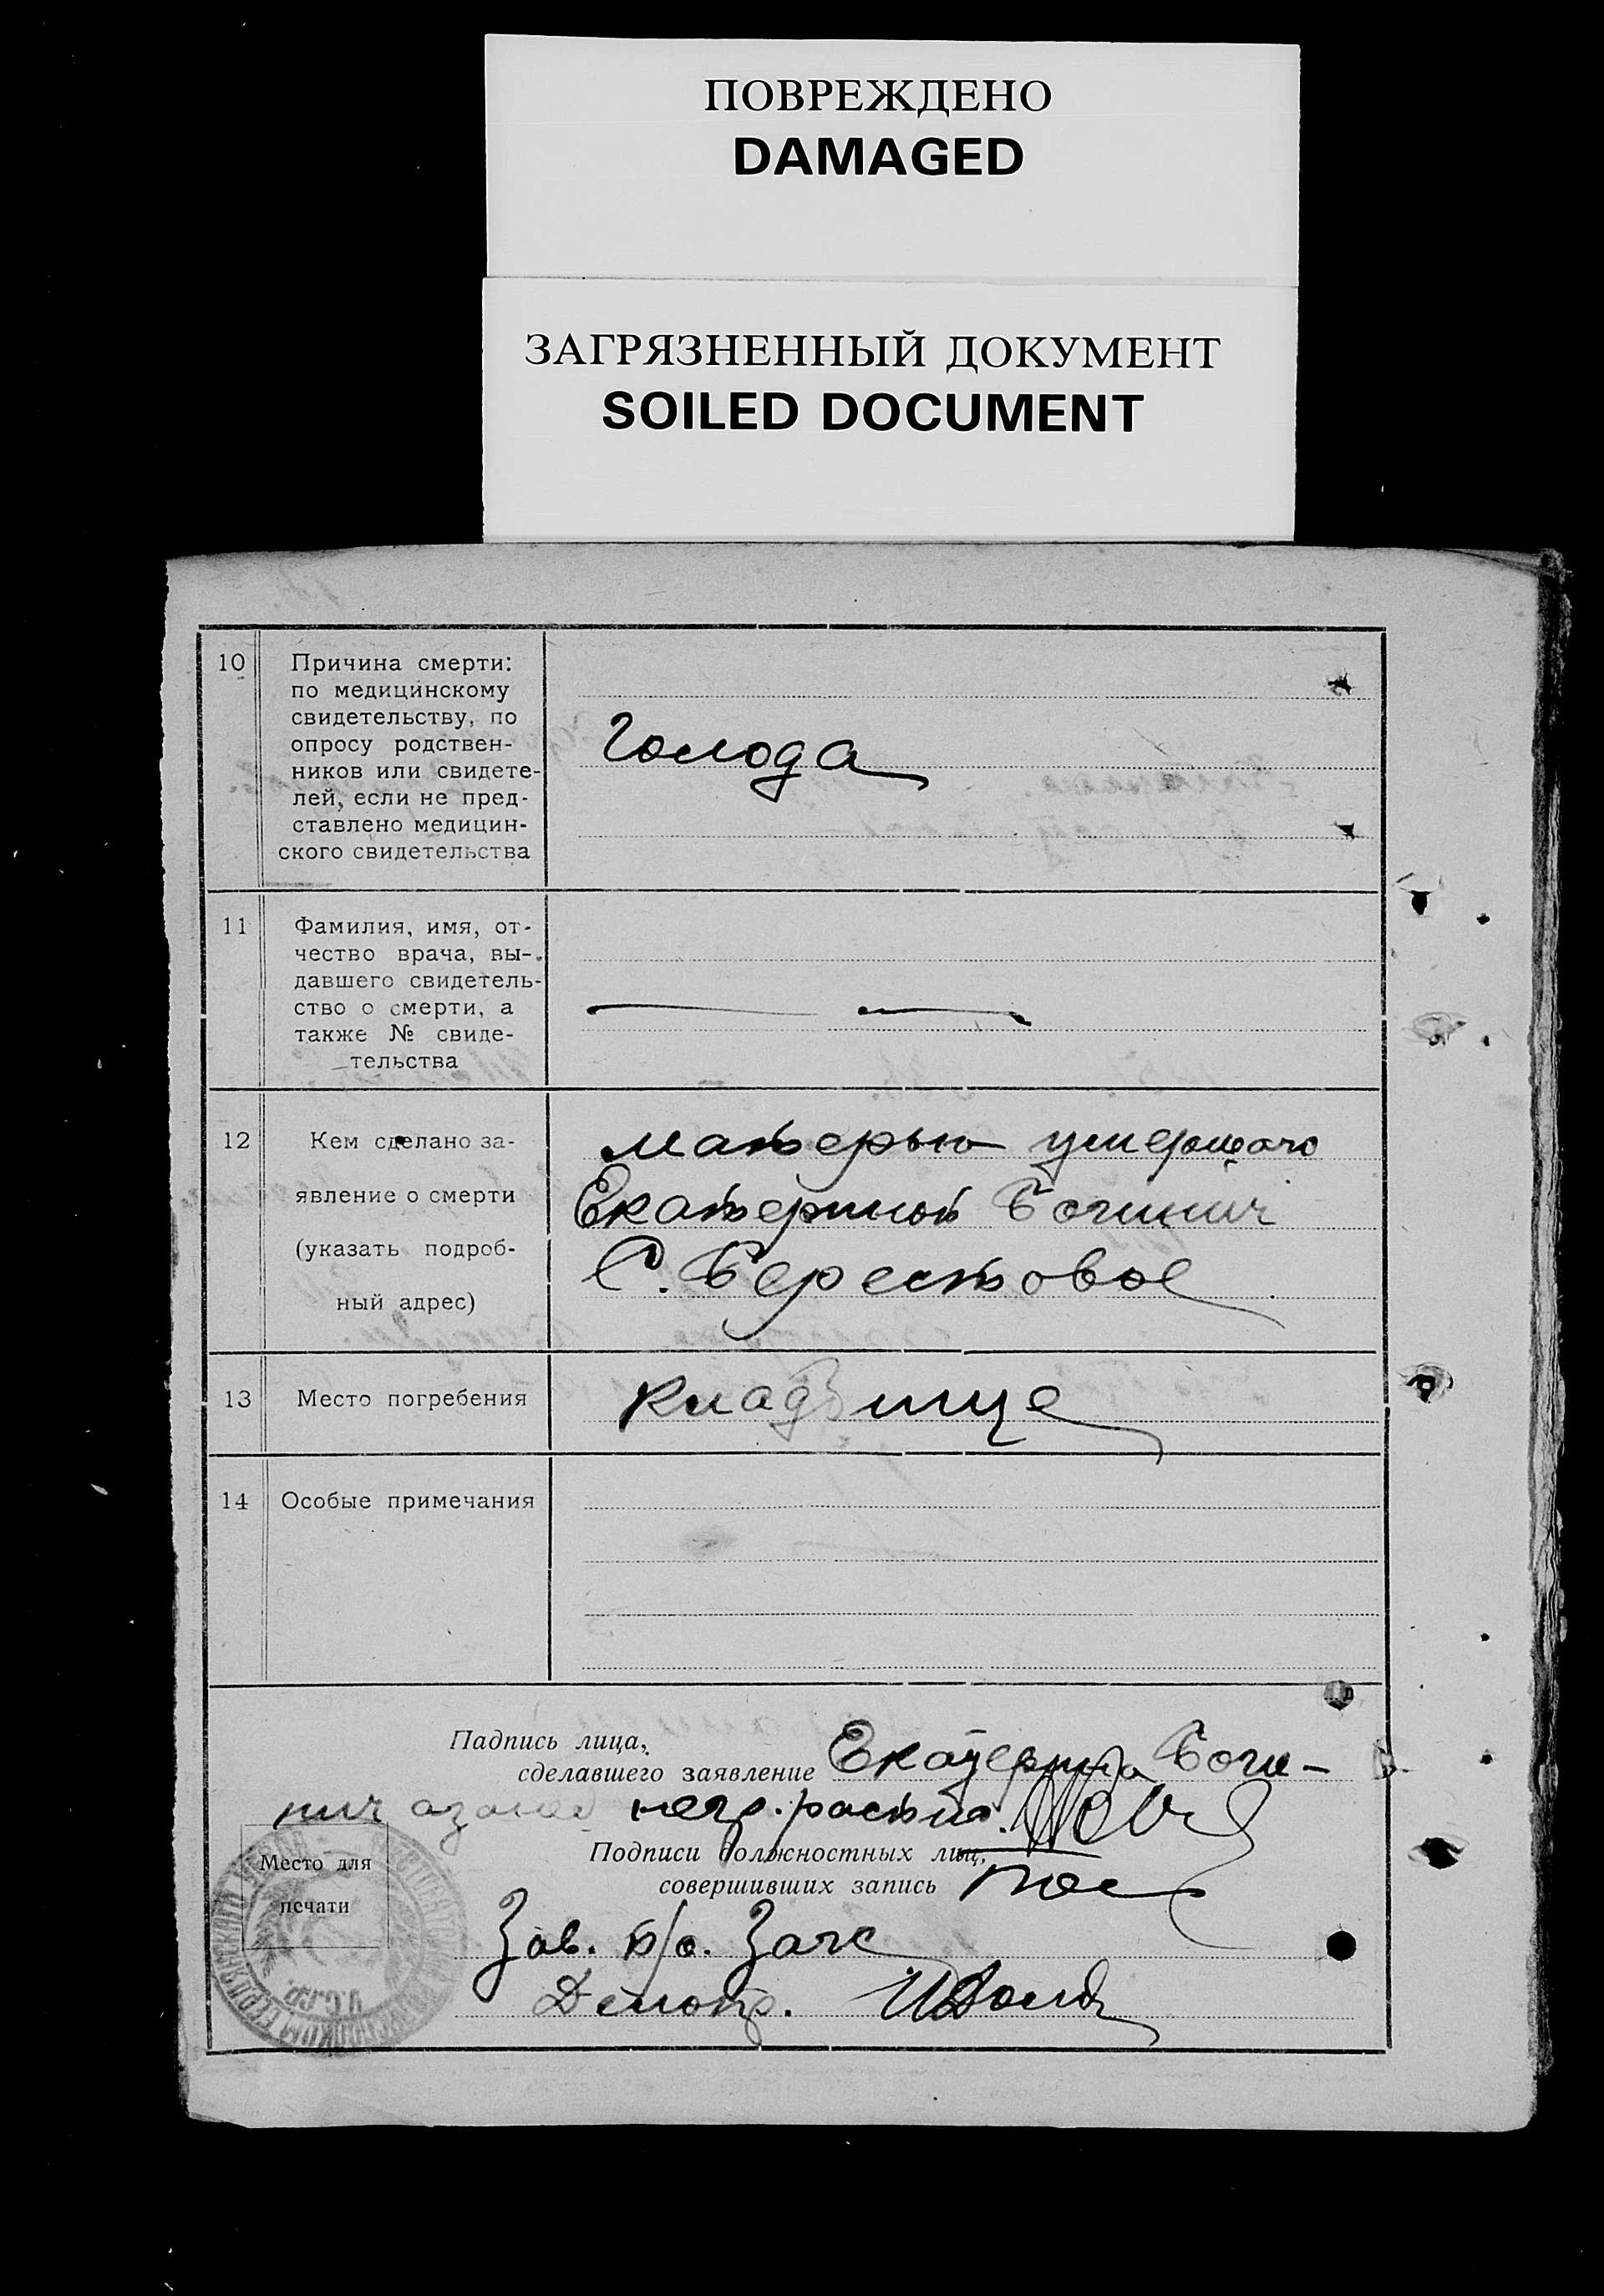 ПОВРЕЖДЕНО
DAMAGED
ЗАГРЯЗНЕННЫЙ ДОКУМЕНТ
SOILED DOCUMENT
10
Причина смерти:
по медицинскому
свидетельству, по
опросу родствен-
ников или свидете-
лей, если не пред-
ставлено медицин-
ского свидетельства
Голода
11
Фамилия, имя, от-
чество врача, вы-
давшего свидетель-
ство о смерти, а
также № свиде-
тельства
12
Кем сделано за-
явление о смерти
(указать подроб-
ный адрес)
матерью умершаго
Екатериной Богинич
С. Берестовое
13
Место погребения
кладбище
14
Особые примечания
Падпись лица,
сделавшего заявление Екатерина Боги-
нич негр.
Место для
печати
Подписи должностных лиц,
совершивших запись
Зав. б/о. Загс